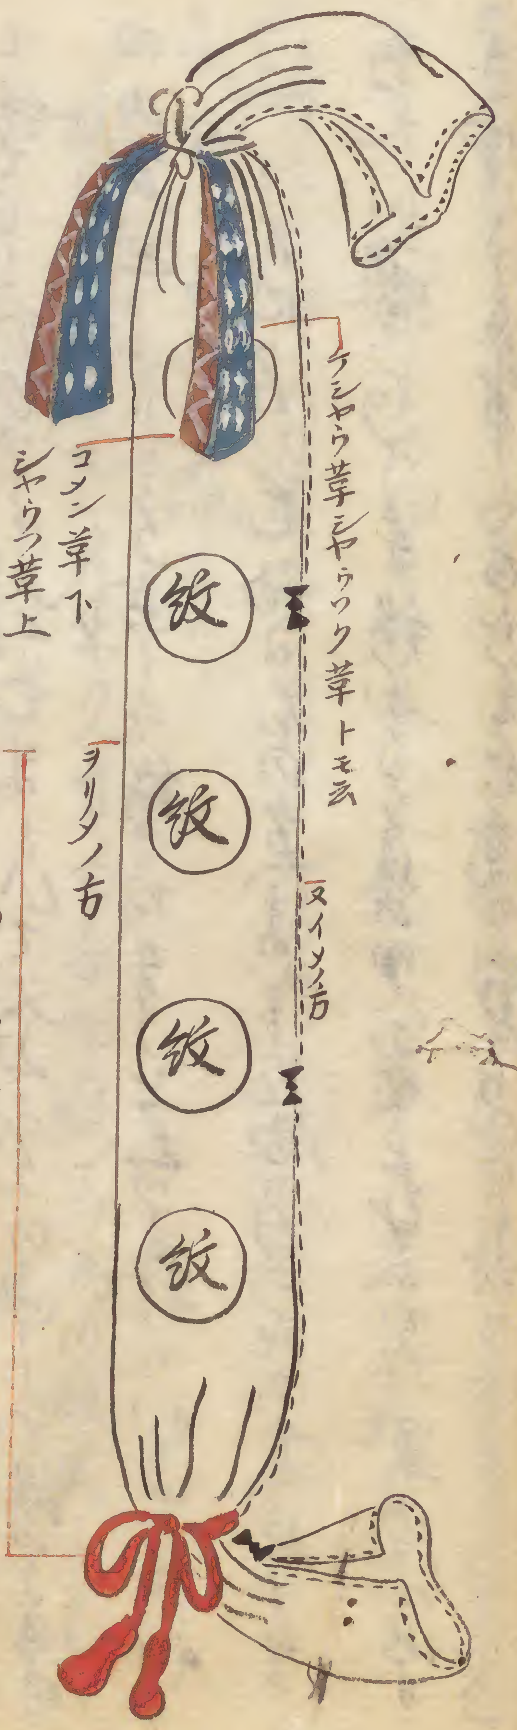 ケシヤウ革シヤウツク革トモ云
ヌイメノ方
紋
紋
紋
紋
ヲリタノ方
コメン革下
シヤウフ革上